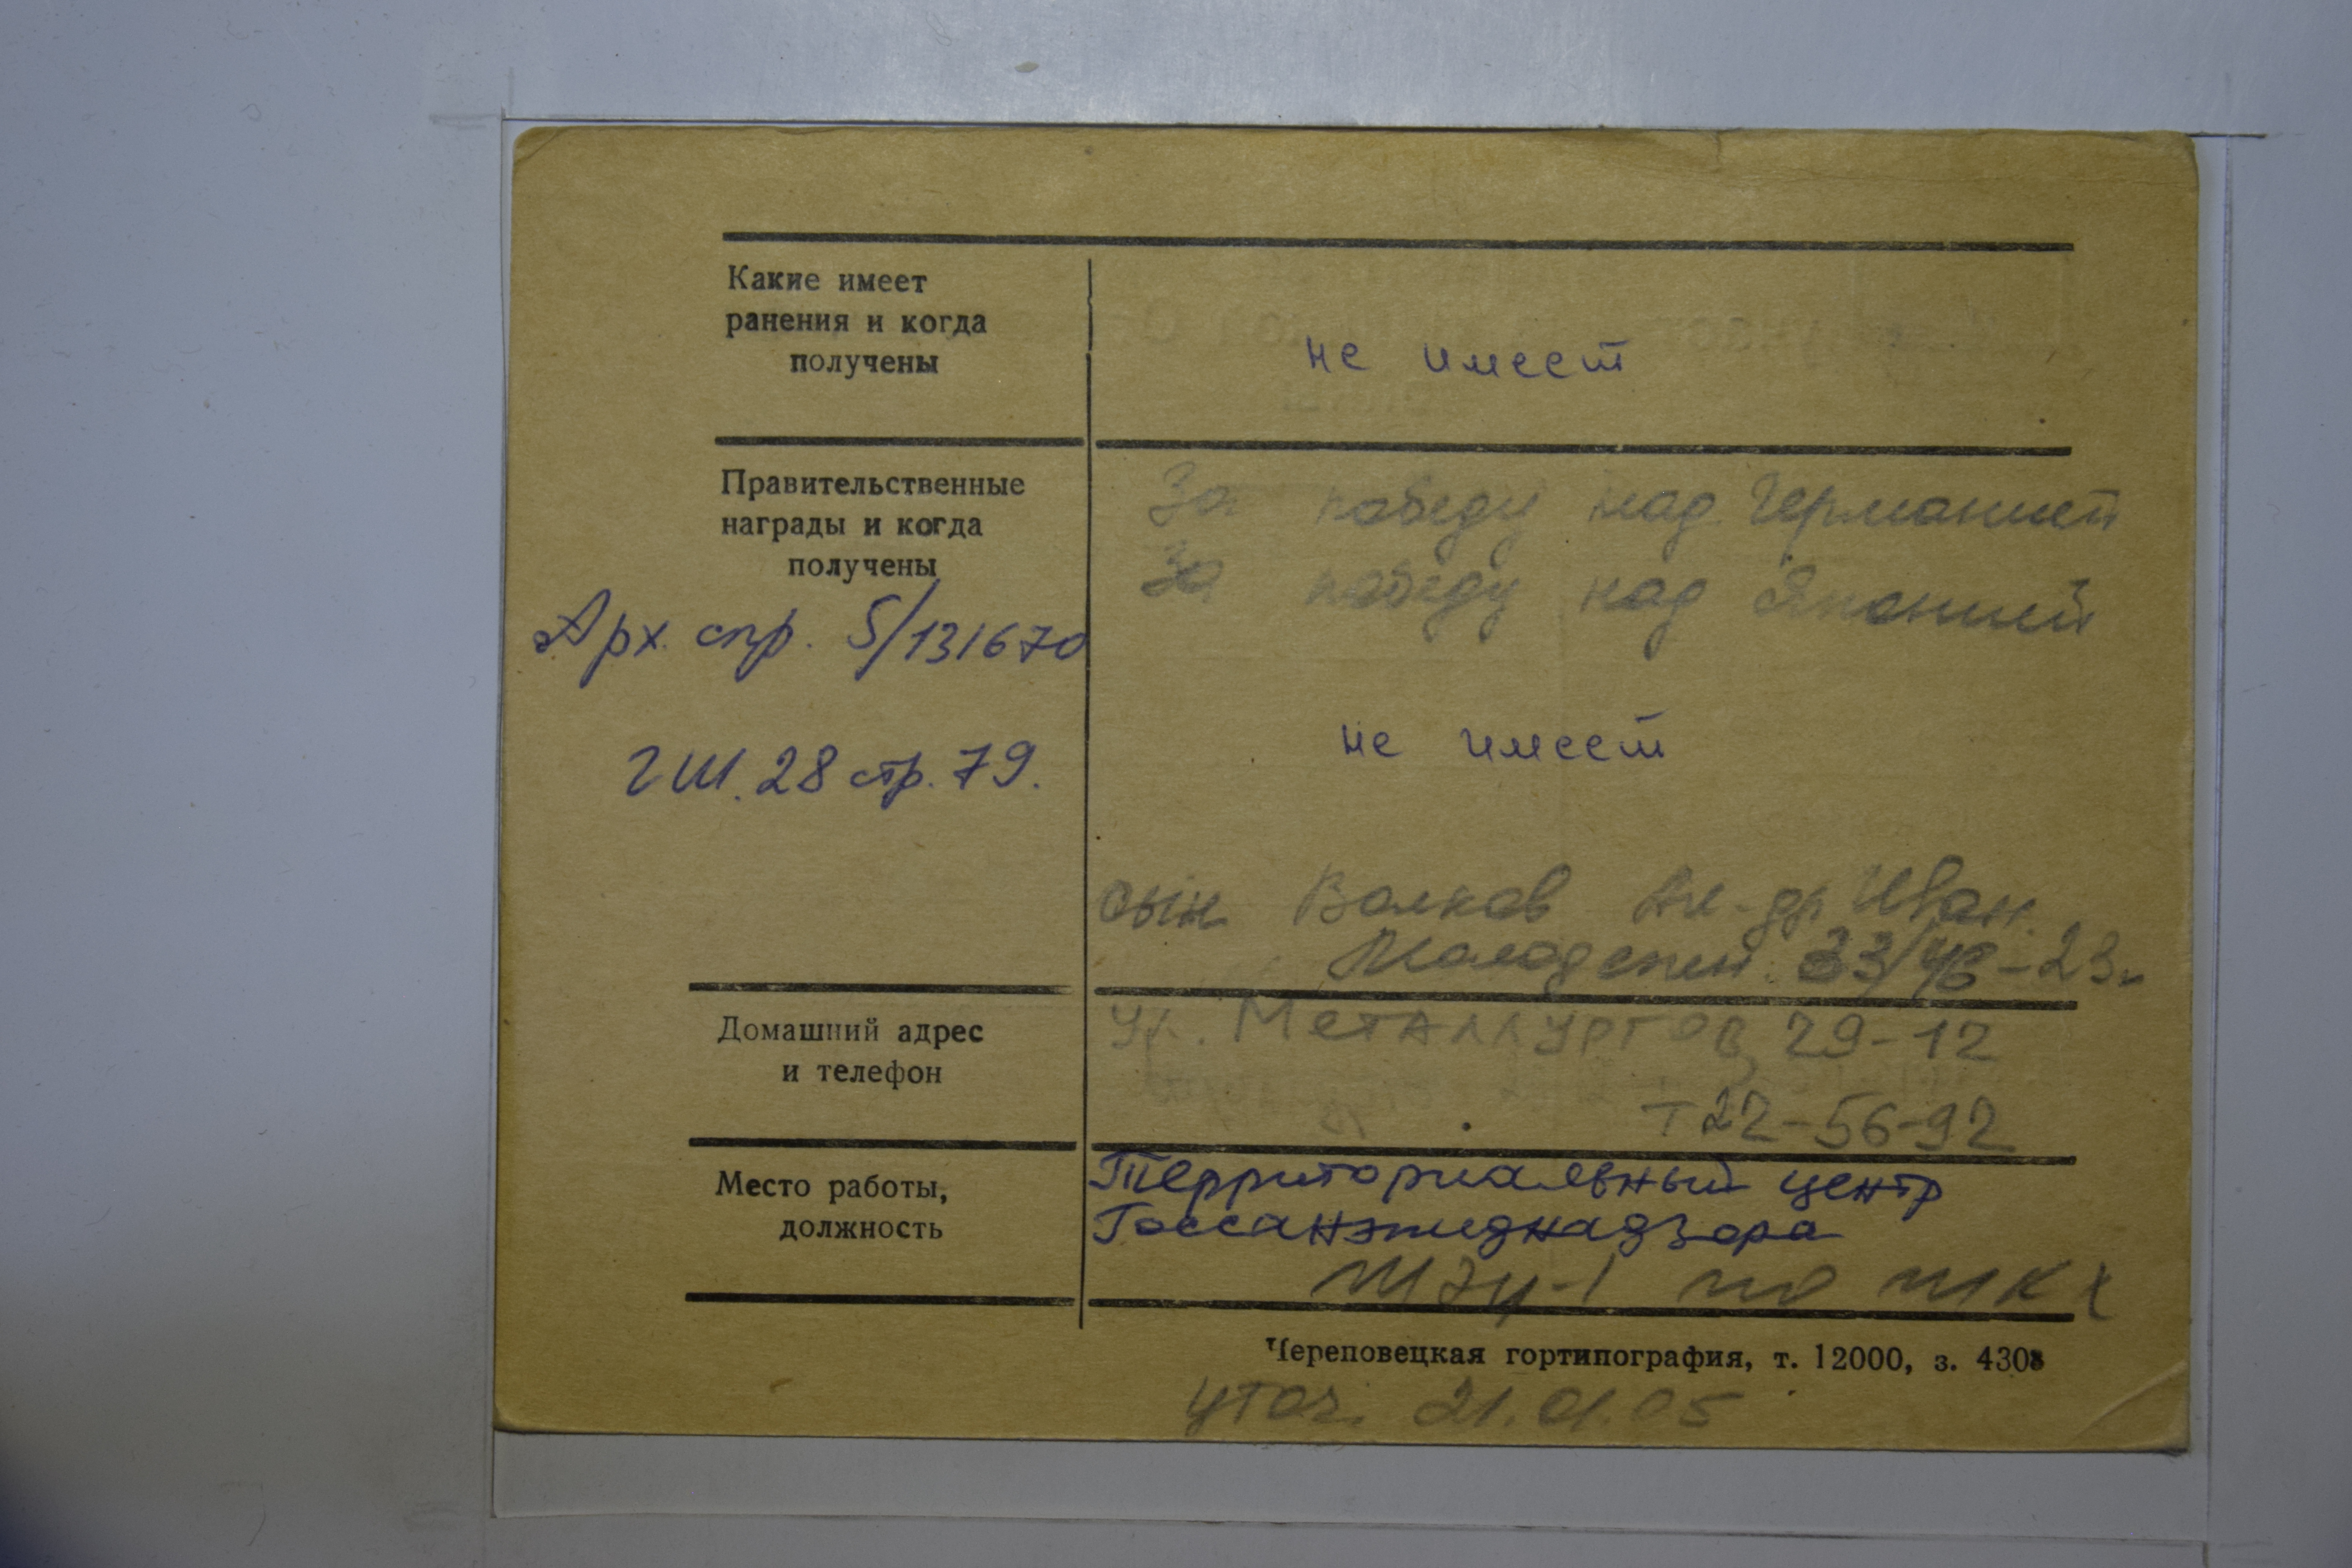 Какие имеет
ранения и когда
получены
не имеет
Правительственные
награды и когда
получены
За победу над Германией
За победу над Японией
Арх. спр. 5/131670
ГШ. 28 стр. 79.
не имеет
сын Волков Ал-др Иван.
Молодежн. 33/46-23
Домашний адрес
и телефон
ул. Металлургов, 29-12
т 22-56-92
Место работы,
должность
Территориальный центр
Госсанэпиднадзора
ЖЭУ-1 по
Череповецкая гортипография, т. 12000, з. 4308
уточ. 21.01.05